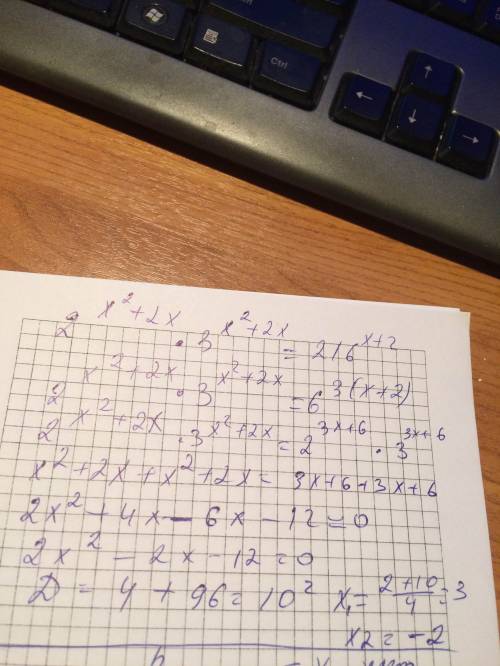 Ctrl
←
↑
↓
→
2^(x²+2x) · 3^(x²+2x) = 216^(x+2)
2^(x²+2x) · 3^(x²+2x) = 6^(3(x+2))
2^(x²+2x) · 3^(x²+2x) = 2^(3x+6) · 3^(3x+6)
x²+2x+x²+2x = 3x+6+3x+6
2x²+4x-6x-12=0
2x²-2x-12=0
D = 4+96=10² x₁=(2+10)/4=3
x2=-2